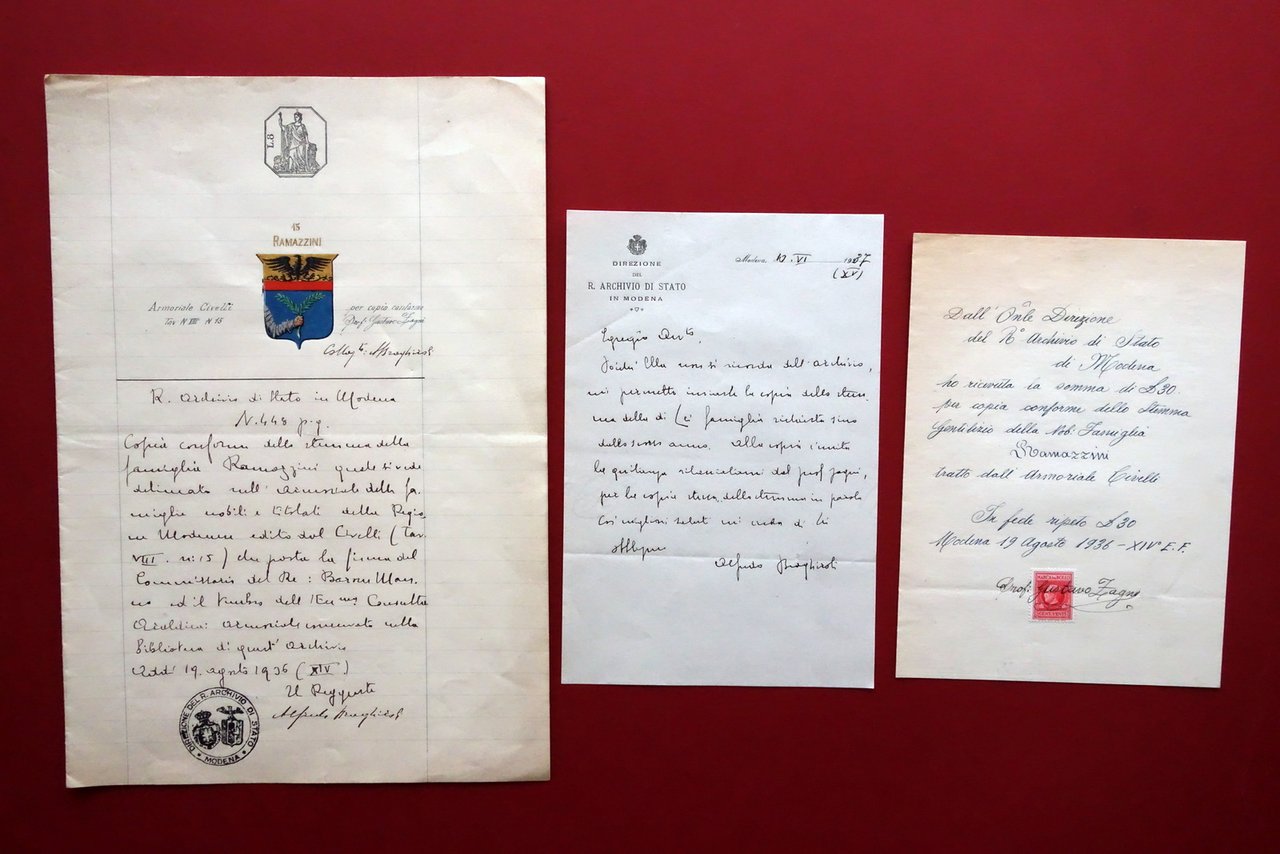 L.8
15
RAMAZZINI
Armoriale Civelli
Tav N VIII N 15
per copia conforme
Prof. Gustavo Zagni
R. Archivio di Stato in Modena
N. 448 p.g.
Copia conforme dello stemma della
famiglia Ramazzini quale si vede
delineato nell' Armoriale delle fa-
miglie nobili e titolati della Regio-
ne Modenese edito dal Civelli (Tav.
VIII. n. 15) che porta la firma del
Commissario del Re: Barone
ed il timbro dell' Consulta
Araldica: armoriale conservato nella
Biblioteca di quest' Archivio
Addì 19. agosto 1936 (XIV)
Il Reggente
Alfredo Braghiroli
DIREZIONE DEL R. ARCHIVIO DI STATO
MODENA
DIREZIONE
DEL
R. ARCHIVIO DI STATO
IN MODENA
Modena, 10. VI 1937
(XV)
Egregio
Poichè Ella non si ricorda dell' archivio,
mi permetto inviarle la copia dello stem-
ma della di Lei famiglia richiesta sino
dallo scorso anno. Alla copia è unita
la quitanza rilasciatami dal prof Zagni,
per la copia stessa dello stemma in parola
Coi migliori saluti mi creda di Lei
Alfredo Braghiroli
Dall' Onle Direzione
del Ro Archivio di Stato
di Modena
ho ricevuta la somma di £ 30.
per copia conforme dello Stemma
Gentilizio della Nob. Famiglia
Ramazzini
tratto dall' Armoriale Civelli
In fede ripeto £ 30
Modena 19 Agosto 1936 - XIV° E.F.
MARCA DA BOLLO
Prof. Gustavo Zagni
CENT. VENTI